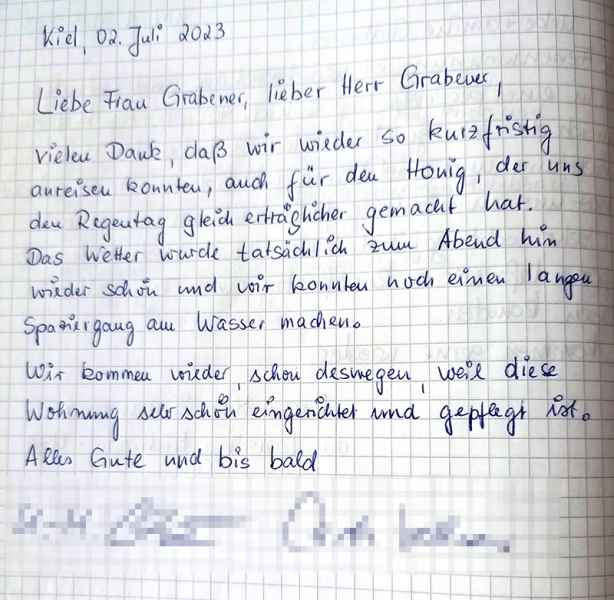 Kiel, 02. Juli 2023
Liebe Frau Grabener, lieber Herr Grabener,
vielen Dank, daß wir wieder so kurzfristig
anreisen konnten, auch für den Honig, der uns
den Regentag gleich erträglicher gemacht hat.
Das Wetter wurde tatsächlich zum Abend hin
wieder schön und wir konnten noch einen langen
Spaziergang am Wasser machen.
Wir kommen wieder, schon deswegen, weil diese
Wohnung sehr schön eingerichtet und gepflegt ist.
Alles Gute und bis bald